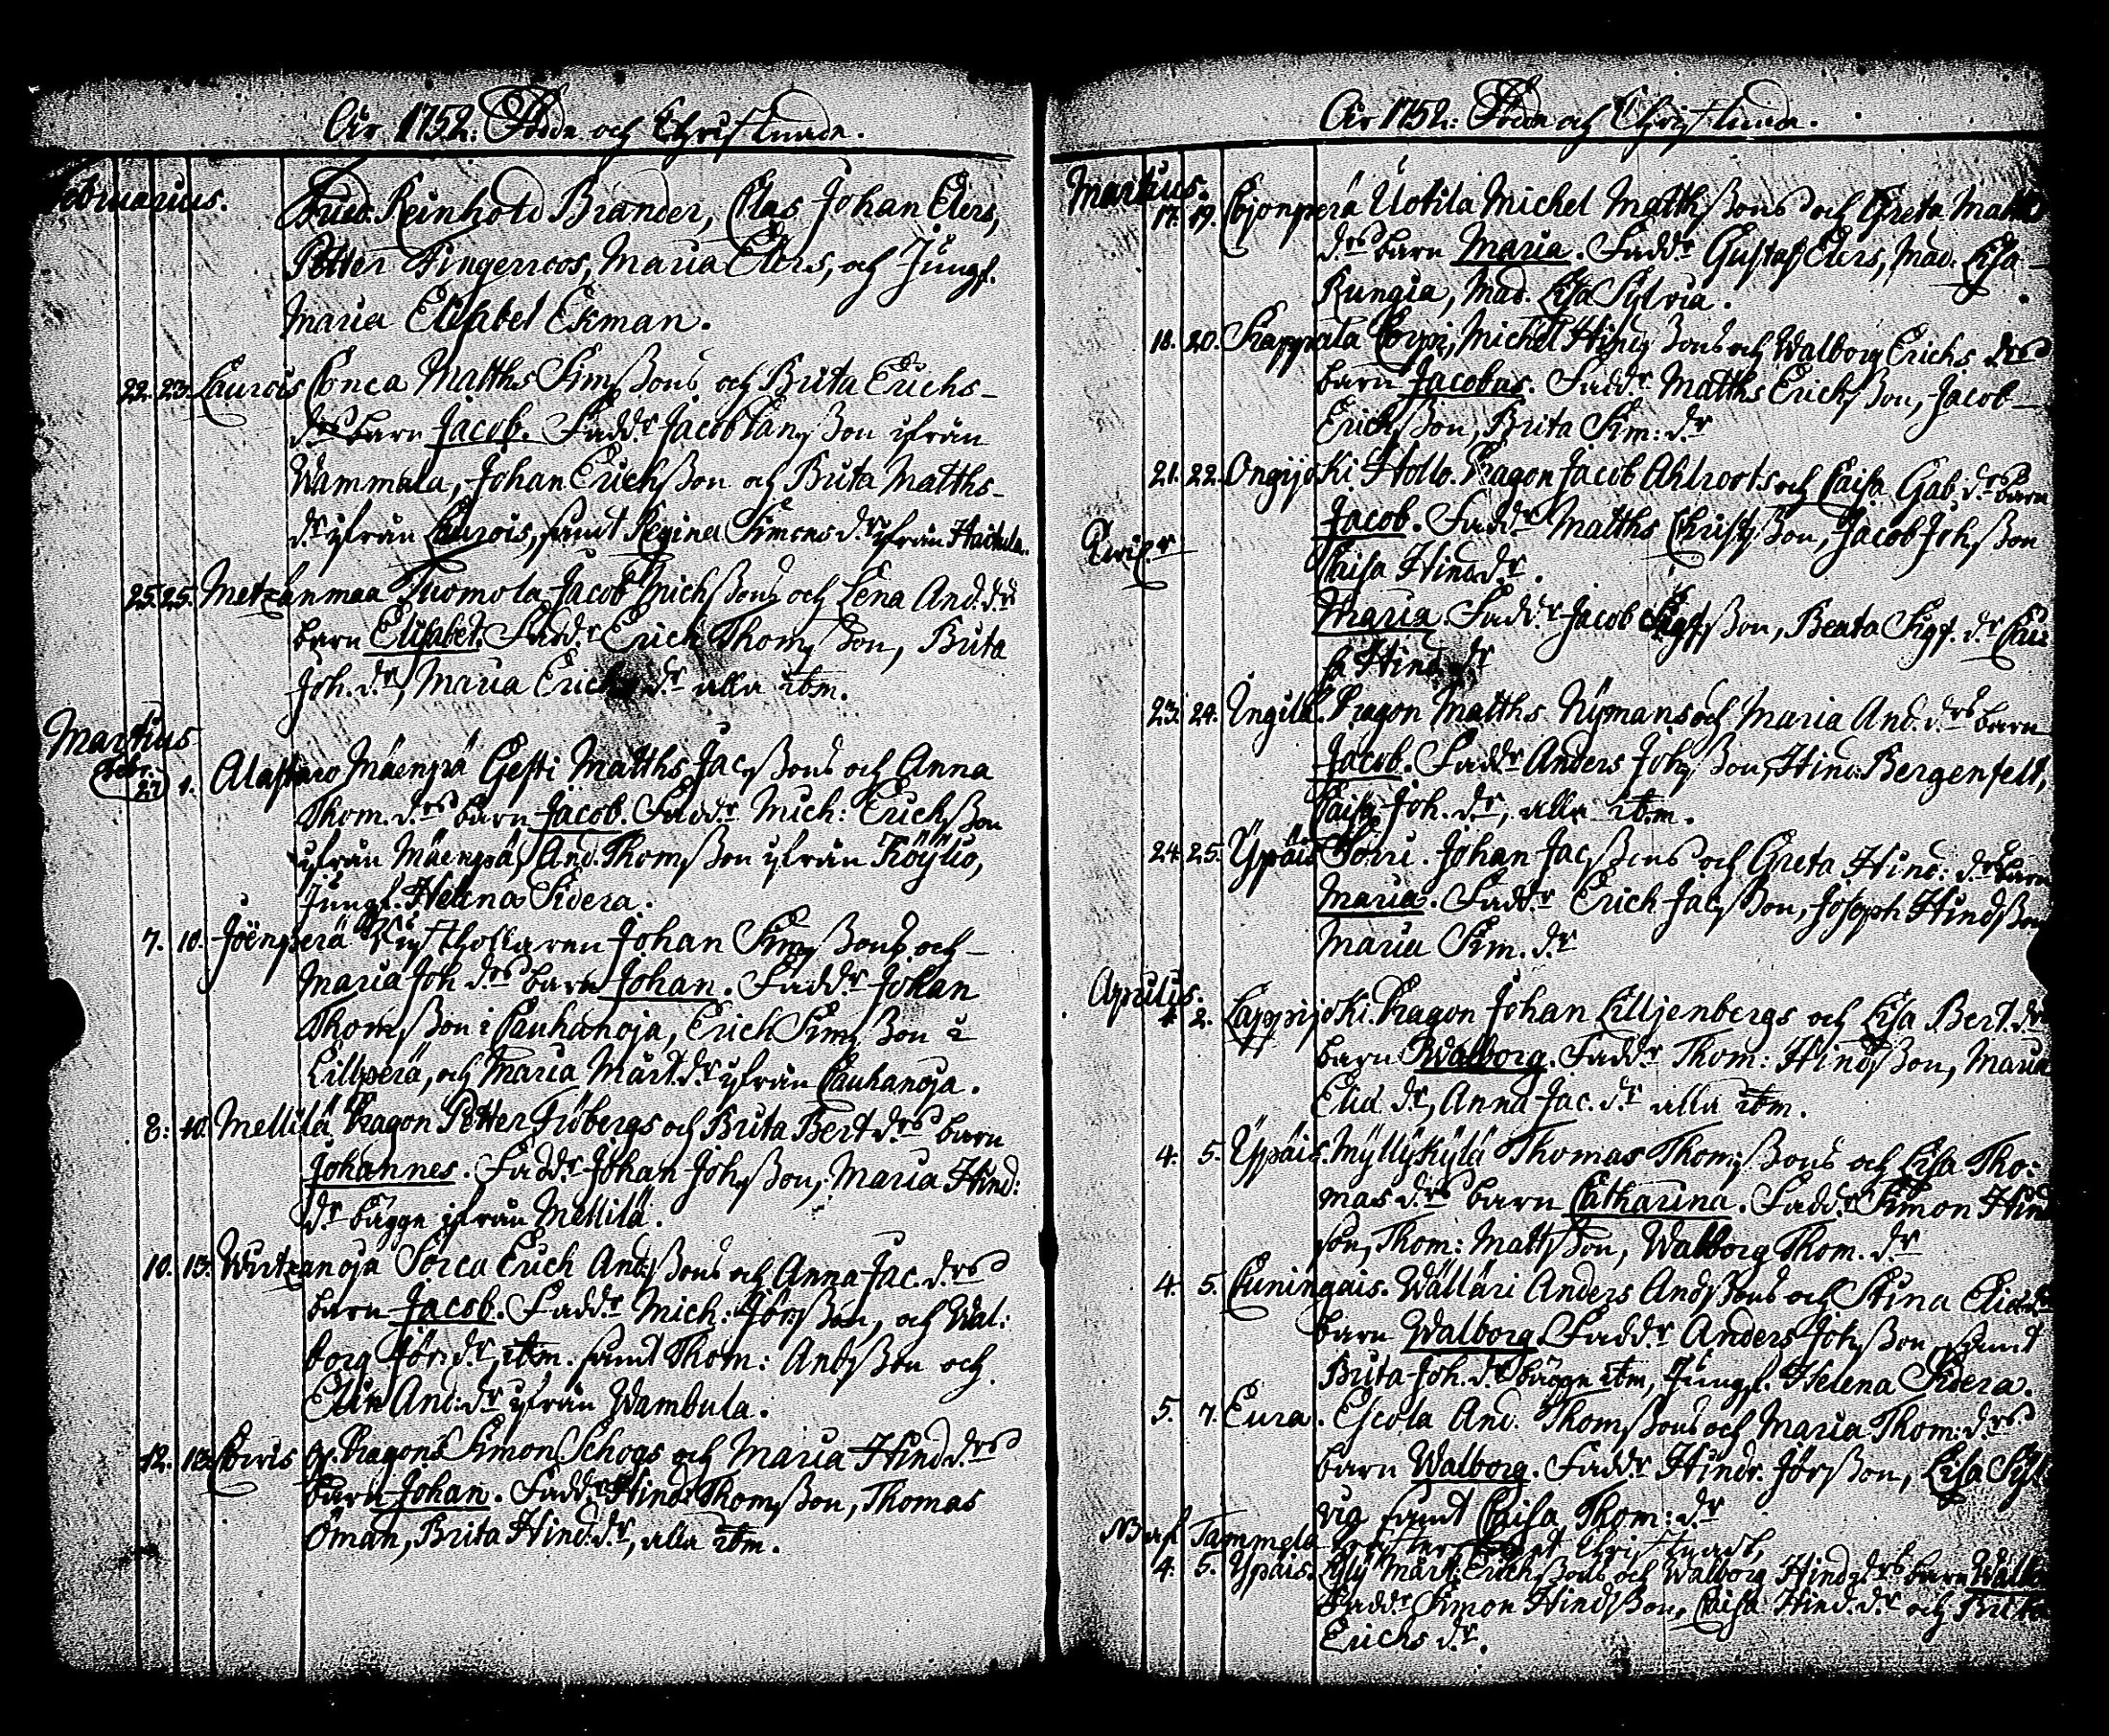 Åhr 1752. Födde och Christnade.
Februarius.
Fried. Reinhold Brander, Clas Johan Elers,
Petter Fingerroos, Maria Elers, och Jungf.
Maria Elisabet Ekman.
22. 23. Laurois Conca Matths Simssons och Brita Erichs-
drs barn Jacob. Faddr Jacob ßon ifrån
Wammala, Johan Erichsßon och Brita Matths-
dr ifrån Laurois, samt Regina Simons dr ifrån
25. 25. Metzänmaa Tuomola Jacob Michßons och Lena And. drs
barn Elisabet. Faddr Erich Thomsßon, Brita
Joh. dr, Maria Erichs dr alla ibm.
Martius
Febr.
27 1. Alastaro Mäenpä Gesti Matths Jacsßons och Anna
Thom. drs barn Jacob. Faddr Mich: Erichsßon
ifrån Mäenpä, And. Thomsßon ifrån Köÿliö,
Jungf. Helena Sidera.
7. 10. Joënperä Rusthollaren Johan Simsßons och
Maria Joh drs barn Johan. Faddr Johan
Thomsßon i Cauhanoja, Erich Simsßon i
Lillperä, och Maria Märt. dr ifrån Cauhanoja.
8. 10. Mellilä Dragon Petter Fribergs och Brita Bert drs barn
Johannes. Faddr Johan Johsßon, Maria Hind:
dr bägge ifrån Mellilä.
10. 13. Wirtzanoja Sorca Erich Andsßons och Anna Jac. drs
barn Jacob. Faddr Mich: Jörsßon, och Wal:
borg Jör. dr, ibm. samt Thom: Andsßon och
Elin And: dr ifrån Wambula.
12. 13. Loris gf. Dragons Simon Schogs och Maria Hind. drs
barn Johan. Faddr Hind: Thomsßon, Thomas
Öman, Brita Hind: dr, alla ibm.
Åhr 1752: Födde och Christnade.
Martius.
17. 19. Cojonperä Uotila Michel Matthsßons och Greta Matts
drs barn Maria. Faddr Gustaf Elers, Mad. Lisa
Rungia, Mad. Lisa Sylvia.
18. 20. Krappala Corpi, Michel Hindsßons och Walborg Erichs drs
barn Jacobus. Faddr Matths Erichsßon, Jacob
Erichsßon, Brita Sim: dr
21. 22. Ongijoki Hollo. Dragon Jacob Ahlroots och Caisa Gab. drs barn
Jacob. Faddr Matths Christsßon, Jacob Johsßon
Caisa Hinds dr.
Maria. Faddr Jacob Sigfsßon, Beata Sigf. dr Cai
sa Hind dr
23. 24. Ungila. Dragon Matths Nÿmans och Maria And. drs barn
Jacob. Faddr Anders Johsßon, Hind: Bergenfelt,
Caisa Joh. dr, alla ibm.
24. 25. Ÿpäis Sorri. Johan Jacsßons och Greta Hind: drs barn
Maria. Faddr Erich Jacsßon, Joseph Hindsßon
Maria Sim. dr
Aprilis.
2. Lappijoki. Dragon Johan Lilljenbergs och Lisa Bert. drs
barn Walborg. Faddr Thom: Hindsßon, Maria
Elia dr, Anna Jac. dr alla ibm.
4. 5. Ÿpäis. Mÿllÿkÿlä Thomas Thomsßons och Lisa Tho-
mas drs barn Catharina. Faddr Simon Hind
son, Thom: Mattsßon, Walborg Thom. dr
4. 5. Cuningais. Wälläri Anders Andsßons och Stina Elia drs
barn Walborg. Faddr Anders Johsßon samt
Brita Joh. dr bägge ibm, Jungf. Helena Sidera.
5. 7. Eura. Escola And. Thomsßons och Maria Thom: drs
barn Walborg. Faddr Hindr. Jörsßon, Lisa
vig samt Caisa Thom: dr
Tammela Christnadt,
4. 5. Ÿpäis. Märt: Erichsßons och Walborg Hinds drs barn
Faddr Simon Hindsßon, Caisa Hind. dr och Brita
Erichs dr.